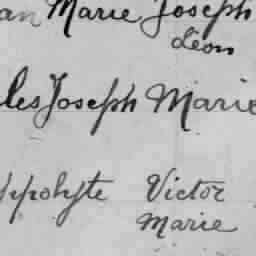 an Marie Joseph
Léon
les Joseph Marie
ppolyte Victor
Marie